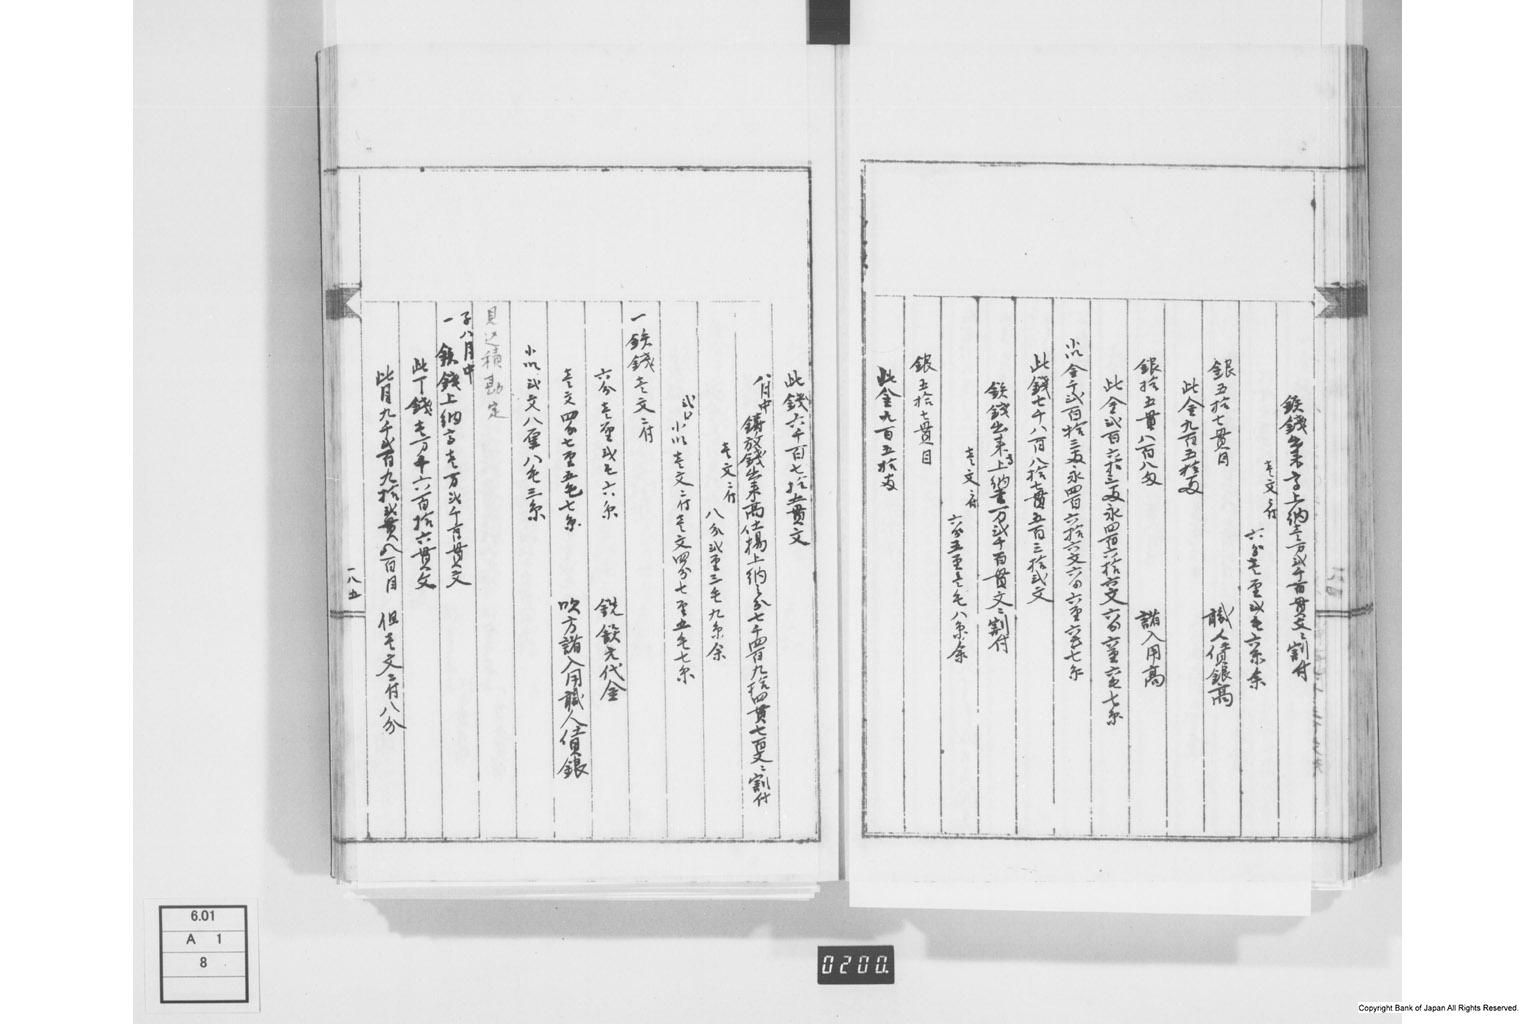 鉄銭出来高上納壱万弐千百貫文ニ割付
壱文ニ付
六分壱厘弐毛六糸余
銀五拾七貫目　職人賃銀高
此金九百五拾両
銀拾五貫八百八匁　諸入用高
此金弐百六拾三両永四百六拾六文六分六厘六毛七糸
小以金千弐百拾三両永四百六拾六文六分六厘六毛七糸
此銭七千八百八拾七貫五百三拾弐文
鉄銭出来高上納壱万弐千百貫文ニ割付
壱文ニ付
六分五厘壱毛八糸余
銀五拾七貫目
此金九百五拾両
此銭六千百七拾五貫文
八月中
鋳放銭出来高仕揚上納之分七千四百九拾四貫七百文ニ割付
壱文ニ付
八分弐厘三毛九糸余
小以壱文ニ付壱文四分七厘五毛七糸
一鉄銭壱文ニ付
六分壱厘弐毛六糸　銑鉄元代金
壱文四分七厘五毛七糸　吹方諸入用職人賃銀
小以弐文八厘八毛三糸
見込積勘定
子八月中
一鉄銭上納高壱万弐千百貫文
此丁銭壱万千六百拾六貫文
此目九千弐百九拾弐貫八百目　但壱文ニ付八分
一八五
6.01
A 1
8
0200.
Copyright Bank of Japan All Rights Reserved.